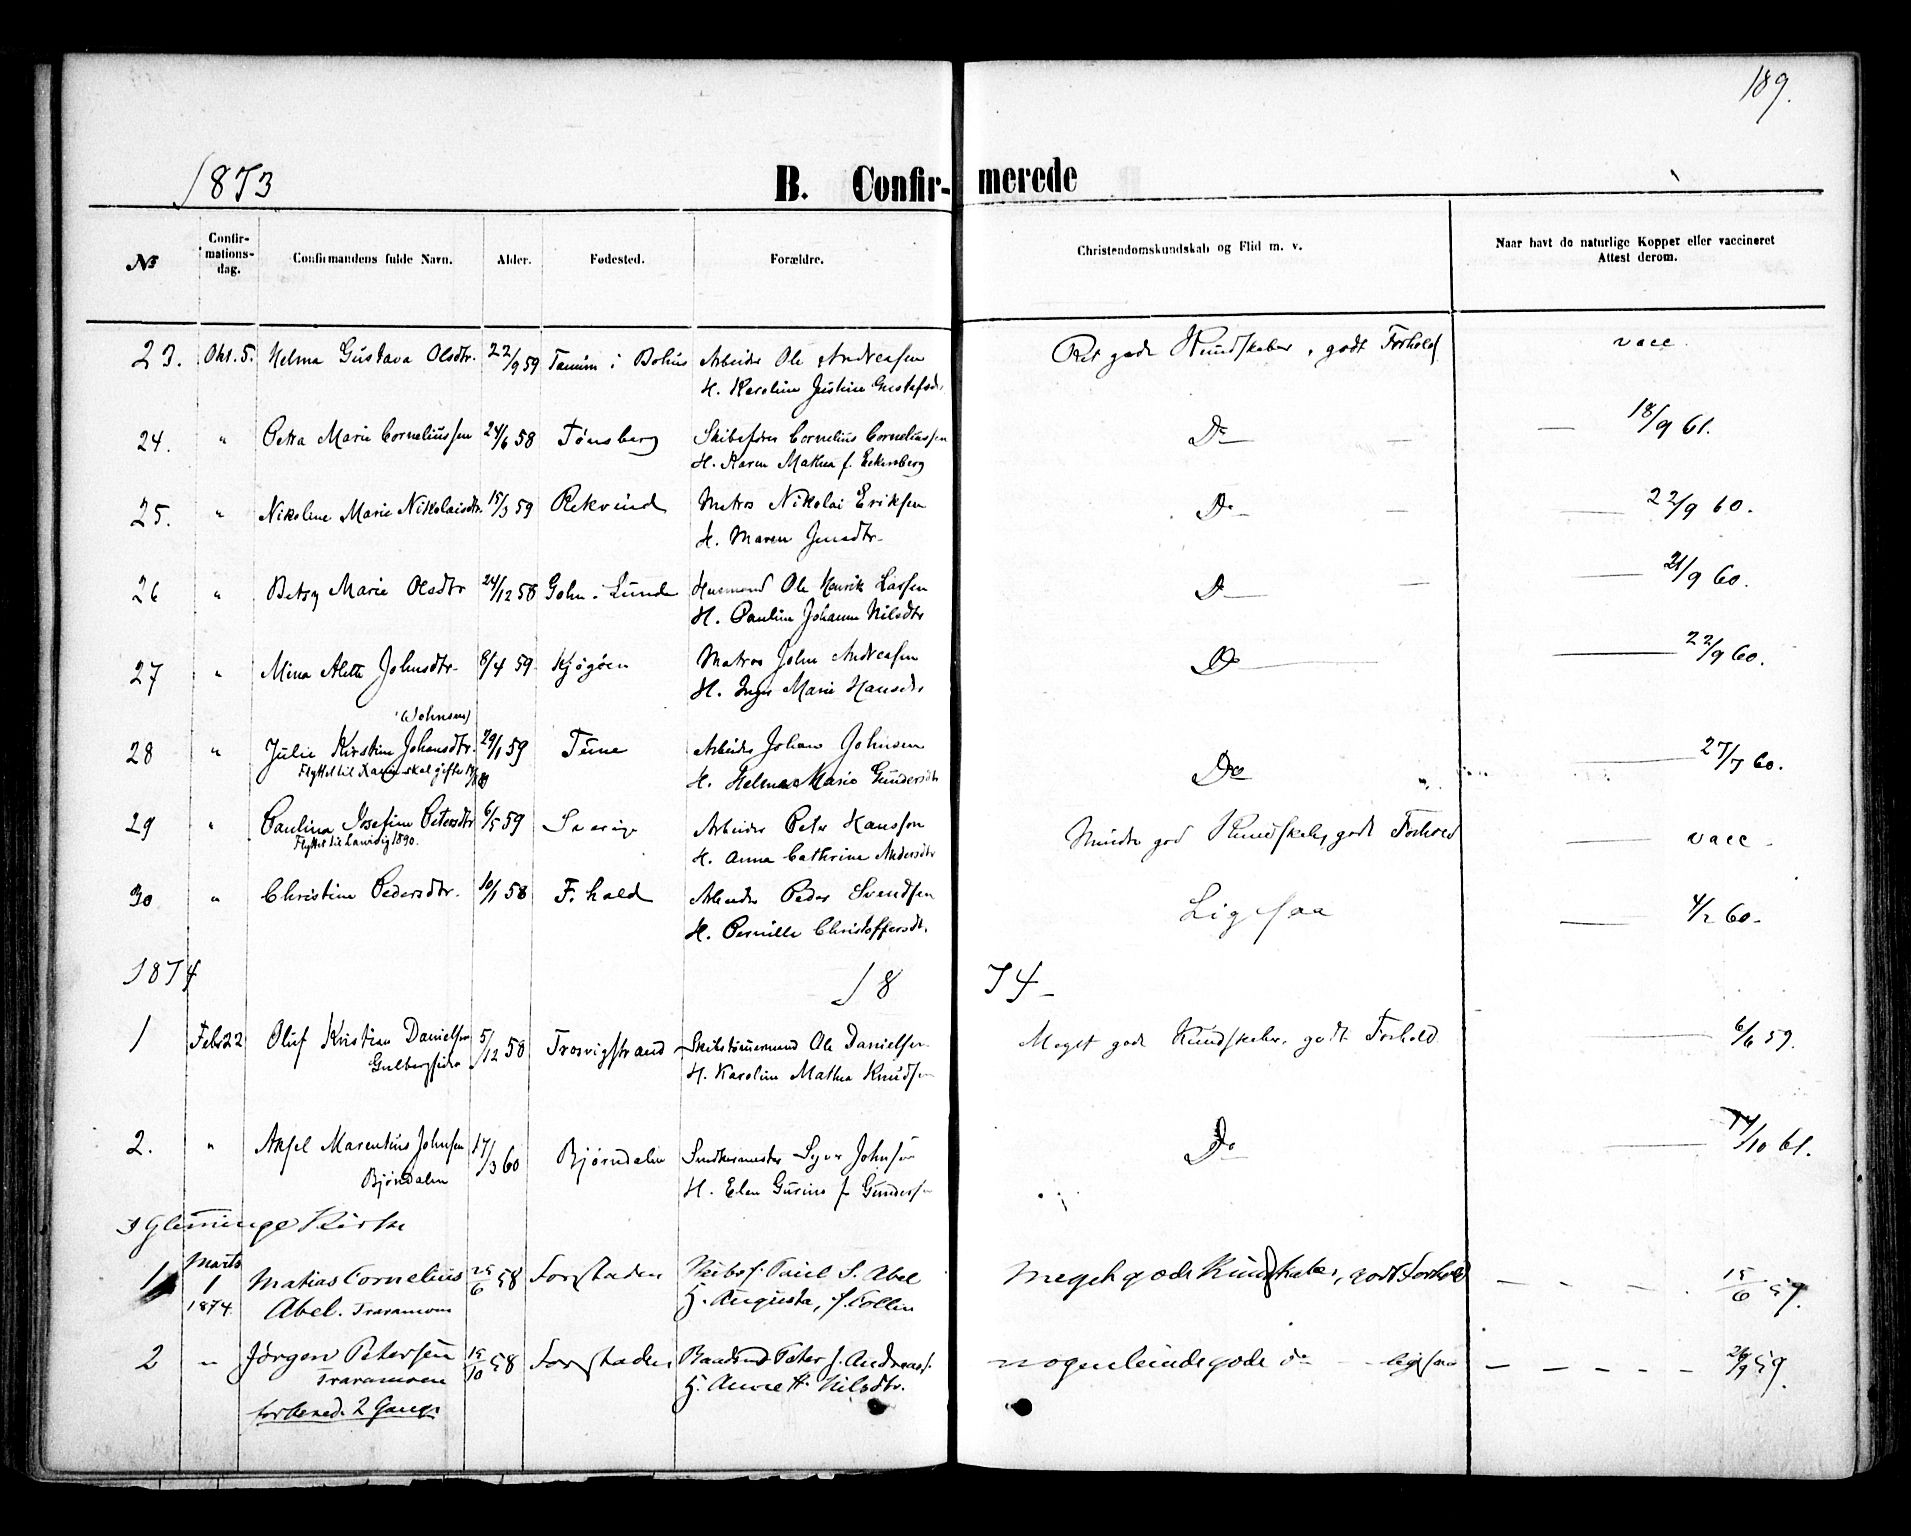 189.
1873
B. Confir- merede
№
Confir-
mations-
dag.
Confirmandens fulde Navn.
Alder.
Fødested.
Forældre.
Christendomskundskab og Flid m. v.
Naar havt de naturlige Kopper eller vaccineret
Attest derom.
23. Okt. 5. Helma Gustava Olsdtr. 22/9 59 Tanum i Bohus Arbeider Ole Andreasen Ret gode Kundskaber, godt Forhold vacc.
H. Karoline Justine Gustafsd.
24. " Petra Marie Corneliussen 24/6 58 Tønsberg Skibsfører Cornelius Corneliussen Do — — — 18/9 61.
H. Karen Mathea f. Eckersberg
25. " Nikoline Marie Nikolaisdtr. 15/3 59 Rekvind Matros Nikolai Eriksen Do — — — 22/9 60.
H. Maren Jensdtr.
26 " Betsy Marie Olsdtr 24/12 58 Goln i Lunde Husmand Ole Henrik Larsen Do — — — 21/9 60.
H. Pauline Johanne Nilsdtr
27 " Mina Alette Johnsdtr. 8/4 59. Kjøgøen Matros John Andreasen Do — — 22/9 60.
H. Inger Marie Hansdtr
(Johnsen)
28 " Julie Kirstine Johansdtr. 29/1 59 Tune Arbeider Johan Johnsen Do " — 27/7 60.
Flyttet til skal gifte H. Helma Marie Gundersdtr
29 " Paulina Josefine Petersdtr 6/5 59 Sverige Arbeider Peter Hansson Mindre god Kundskab, godt Forhold — vacc.
Flyttet til Laurvig 1890. H. Anna Cathrine Andersdtr
30 " Christine Pedersdtr. 10/1 58 F.hald Arbeider Peder Svendsen Ligesaa — 4/2 60.
H. Pernille Christoffersdt.
1874 18 74
1 Febr 22 Oluf Kristian Danielsen 5/12 58 Trosvigstrand Skibstømmermand Ole Danielsen Meget gode Kundskaber, godt Forhold — 6/6 59.
H. Karoline Mathea Knudsen
2. " Axel Marentius Johnsen 17/3 60 Bjørndalen Syver Johnsen Do — /10 61.
Bjørndalen H. Elen Gurine f. Gundersen
I Glemminge Kirke
1 Marts 1 Matias Cornelius 25/6 58 Forstaden Poul S. Abel Meget gode Kundskaber, godt Forhold — — — — 15/6 59.
1874. Abel. Traramoen H. Augusta, f. Tollin
2 " Jørgen Petersen 15/10 58 Forstaden Baadsmd Peter f. Andreas. nogenlunde gode do — ligesaa — — — — — 26/9 59.
Traramoen H. Annette Nilsdtr.
forkened. 2 Gange